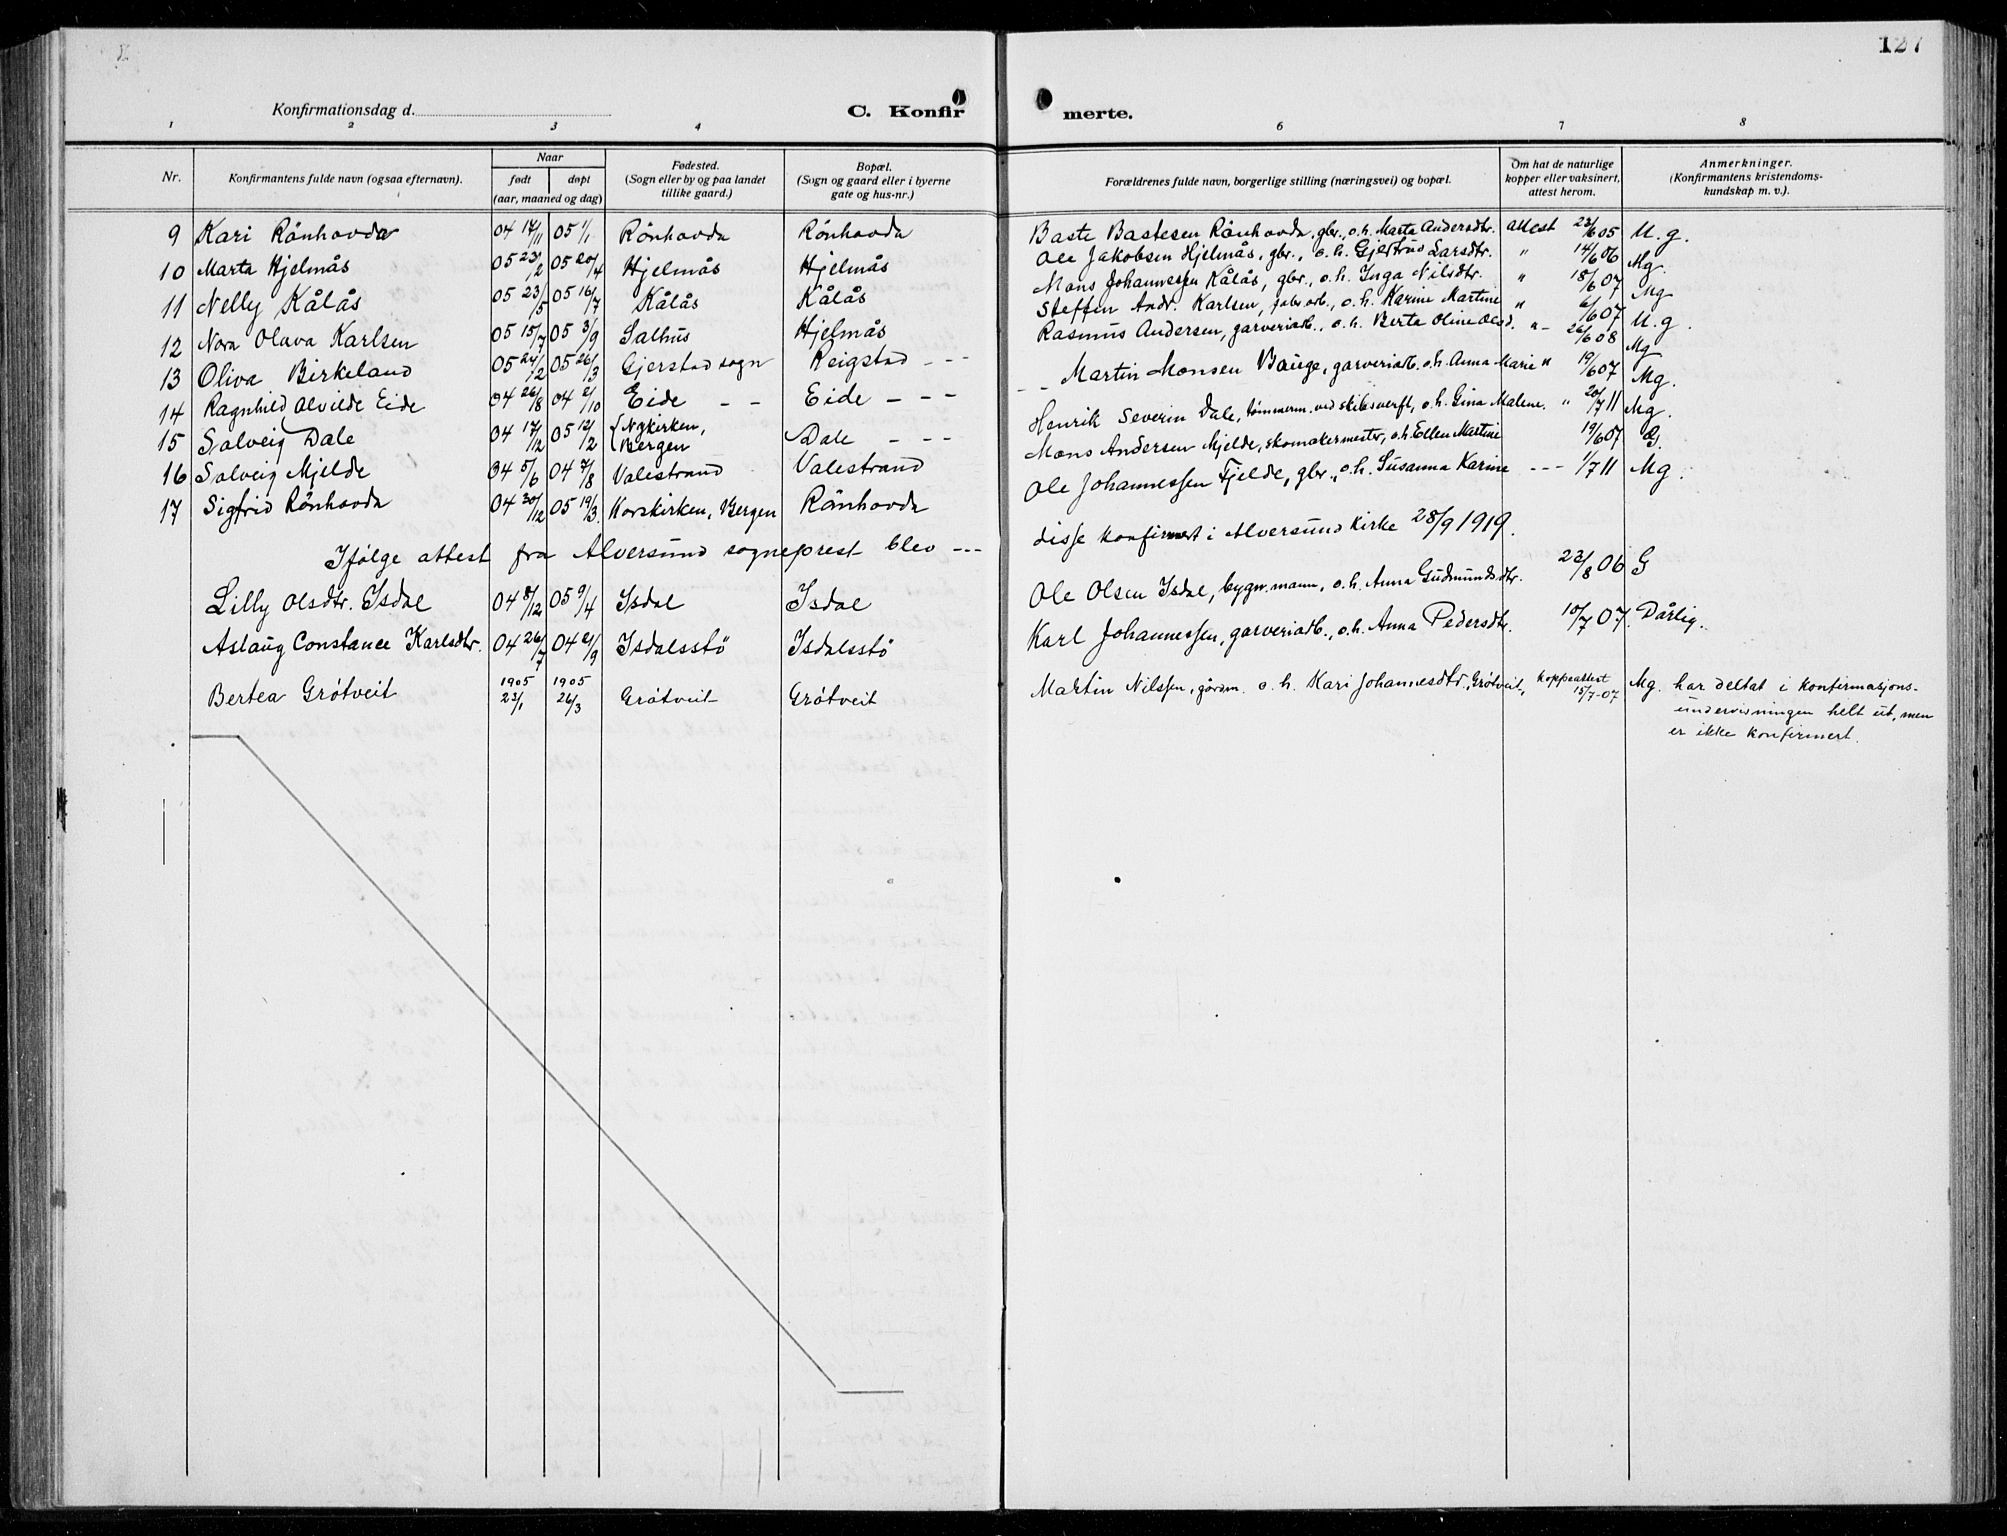 127
Konfirmationsdag d.
C. Konfir merte.
1 2 3 4 6 7 8
Nr. Konfirmantens fulde navn (ogsaa efternavn). Naar født døpt (aar, maaned og dag) Fødested. (Sogn eller by og paa landet tillike gaard.) Bopæl. (Sogn og gaard eller i byerne gate og hus-nr.) Forældrenes fulde navn, borgerlige stilling (næringsvei) og bopæl. Om hat de naturlige kopper eller vaksinert, attest herom. Anmerkninger. (Konfirmantens kristendoms-kundskap m. v.).
9 Kari Rönhovda 04 17/11 05 1/1 Rönhovda Rönhovda Baste Bastesen Rönhovda, gbr., o.h. Marta Andersdtr. attest 23/6 05 M.g.
10 Marta Hjelmås 05 23/2 05 20/4 Hjelmås Hjelmås Ole Jakobsen Hjelmås, gbr., o.h. Gjertrud Larsdtr. " 14/6 06 Mg.
11 Nelly Kålås 05 23/5 05 16/7 Kålås Kålås Mons Johannessen Kålås, gbr., o.h. Inga Nilsdtr. " 18/6 07 Mg
12 Nora Olava Karlsen 05 15/7 05 3/9 Salhus Hjelmås Steffen Andr. Karlsen, fabr.arb., o.h. Karine Martine " 6/6 07 M.g.
13 Oliva Birkeland 05 24/2 05 26/3 Gjerstad sogn Reigstad - - - Rasmus Andersen, garveriarb., o.h. Berta Oline Olsd. " - 26/6 08 Mg
14 Ragnhild Alvilde Eide 04 26/8 04 2/10 Eide - - Eide - - - - - Martin Monsen Bauge, garveriarb. o.h. Anna Marie " 19/6 07 Mg.
15 Solveig Dale 04 17/12 05 12/2 {Nykirken, Bergen Dale - - - Henrik Severin Dale, tømmerm. ved skibsverft, o.h. Gina Malene. " 20/7 11 Mg.
16 Solveig Mjelde 04 5/6 04 7/8 Valestrand Valestrand Mons Andersen Mjelde, skomakermester, o.h. Ellen Martine 19/6 07 G.
17 Sigfrid Rönhovda 04 30/12 05 19/3 Korskirken, Bergen Rönhovda Ole Johannessen Fjelde, gbr., o.h. Susanna Karine - - - 1/7 11 Mg.
Ifølge attest fra Alversund sogneprest blev - - - disse konfirmert i Alversund kirke 28/9 1919.
Lilly Olsdtr. Isdal 04 8/12 05 9/4 Isdal Isdal Ole Olsen Isdal, bygn.mann, o.h. Anna Gudmundsdtr. 23/8 06 G
Aslaug Constance Karlsdtr. 04 26/7 04 2/9 Isdalsstö Isdalsstö Karl Johannessen, garveriarb., o.h. Anna Pedersdtr. 10/7 07. Dårlig.
Bertea Grótveit 1905 23/1 1905 26/3 Grótveit Grótveit Martin Nilssen, gårdm. o. h. Kari Johannesdtr. Grótveit, koppeattest 15/7-07 Mg. har deltat i konfirmasjons-
undervisningen helt ut, men
er ikke konfirmert.